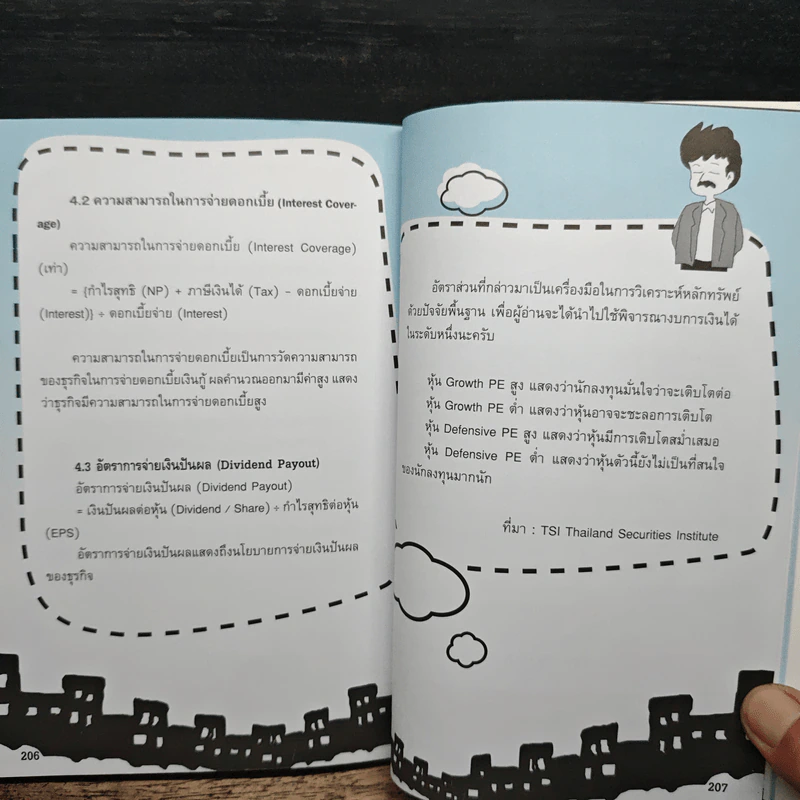 4.2 ความสามารถในการจ่ายดอกเบี้ย (Interest Cover-
age)
ความสามารถในการจ่ายดอกเบี้ย (Interest Coverage)
(เท่า)
= {กำไรสุทธิ (NP) + ภาษีเงินได้ (Tax) – ดอกเบี้ยจ่าย
(Interest)} ÷ ดอกเบี้ยจ่าย (Interest)
ความสามารถในการจ่ายดอกเบี้ยเป็นการวัดความสามารถ
ของธุรกิจในการจ่ายดอกเบี้ยเงินกู้ ผลคำนวณออกมามีค่าสูง แสดง
ว่าธุรกิจมีความสามารถในการจ่ายดอกเบี้ยสูง
4.3 อัตราการจ่ายเงินปันผล (Dividend Payout)
อัตราการจ่ายเงินปันผล (Dividend Payout)
= เงินปันผลต่อหุ้น (Dividend / Share) ÷ กำไรสุทธิต่อหุ้น
(EPS)
อัตราการจ่ายเงินปันผลแสดงถึงนโยบายการจ่ายเงินปันผล
ของธุรกิจ
206
อัตราส่วนที่กล่าวมาเป็นเครื่องมือในการวิเคราะห์หลักทรัพย์
ด้วยปัจจัยพื้นฐาน เพื่อผู้อ่านจะได้นำไปใช้พิจารณางบการเงินได้
ในระดับหนึ่งนะครับ
หุ้น Growth PE สูง แสดงว่านักลงทุนมั่นใจว่าจะเติบโตต่อ
หุ้น Growth PE ต่ำ แสดงว่าหุ้นอาจจะชะลอการเติบโต
หุ้น Defensive PE สูง แสดงว่าหุ้นมีการเติบโตสม่ำเสมอ
หุ้น Defensive PE ต่ำ แสดงว่าหุ้นตัวนี้ยังไม่เป็นที่สนใจ
ของนักลงทุนมากนัก
ที่มา : TSI Thailand Securities Institute
207